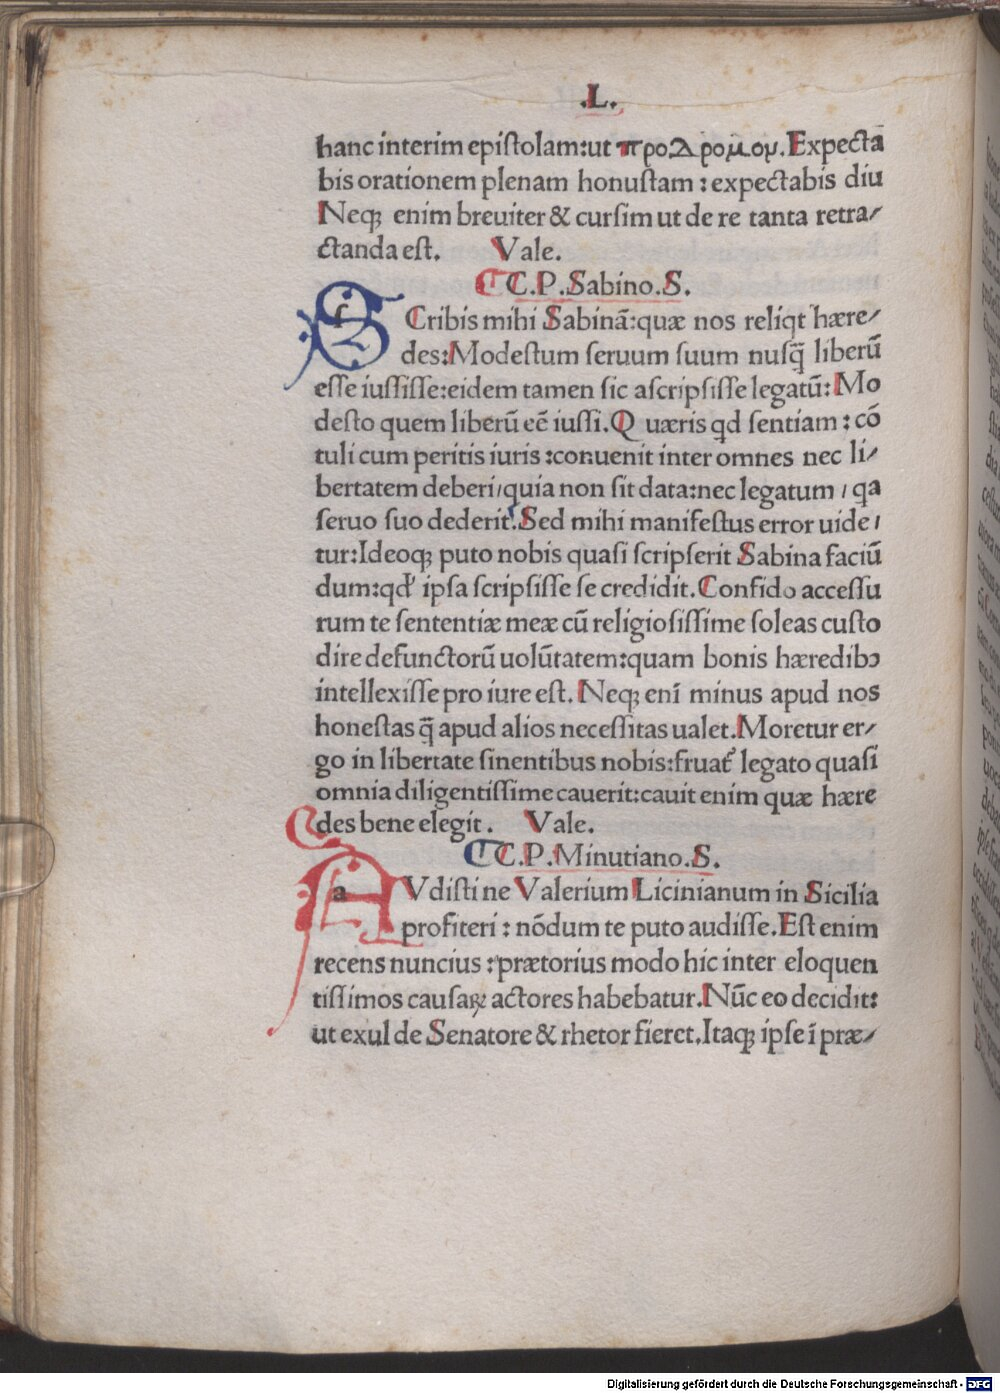 .L.
hanc interim epiſtolam:ut προΔρομομ.Expectā
bis orationem plenam honuſtam : expectabis diu
Neqꝫ enim breuiter & curſim ut de re tanta retra⸗
ctanda eſt. Vale.
C.P.Sabino.S.
SCribis mihi Sabinā:quæ nos reliqt hære⸗
des:Modeſtum ſeruum ſuum nuſq̄ liberū
eſſe iuſſiſſe:eidem tamen ſic aſcripſiſſe legatū:Mo
deſto quem liberū eē iuſſi.Quæris qd ſentiam : cō
tuli cum peritis iuris :conuenit inter omnes nec li⸗
bertatem deberi/quia non ſit data:nec legatum / qa
ſeruo ſuo dederit.Sed mihi manifeſtus error uide/
tur:Ideoqꝫ puto nobis quaſi ſcripſerit Sabina faciū
dum:qd' ipſa ſcripſiſſe ſe credidit.Confido acceſſu
rum te ſententiæ meæ cū religioſiſſime ſoleas cuſto
dire defunctorū uolūtatem:quam bonis hæredibꝰ
intellexiſſe pro iure eſt. Neqꝫ enī minus apud nos
honeſtas q̄ apud alios neceſſitas ualet.Moretur er⸗
go in libertate ſinentibus nobis:fruat᷑ legato quaſi
omnia diligentiſſime cauerit:cauit enim quæ hære
des bene elegit. Vale.
C.P.Minutiano.S.
AVdiſti ne Valerium Licinianum in Sicilia
profiteri : nōdum te puto audiſſe.Eſt enim
recens nuncius : prætorius modo hic inter eloquen
tiſſimos cauſaꝝ actores habebatur.Nūc eo decidit:
ut exul de Senatore & rhetor fieret.Itaqꝫ ipſe ī præ⸗
Digitalisierung gefördert durch die Deutsche Forschungsgemeinschaft - DFG